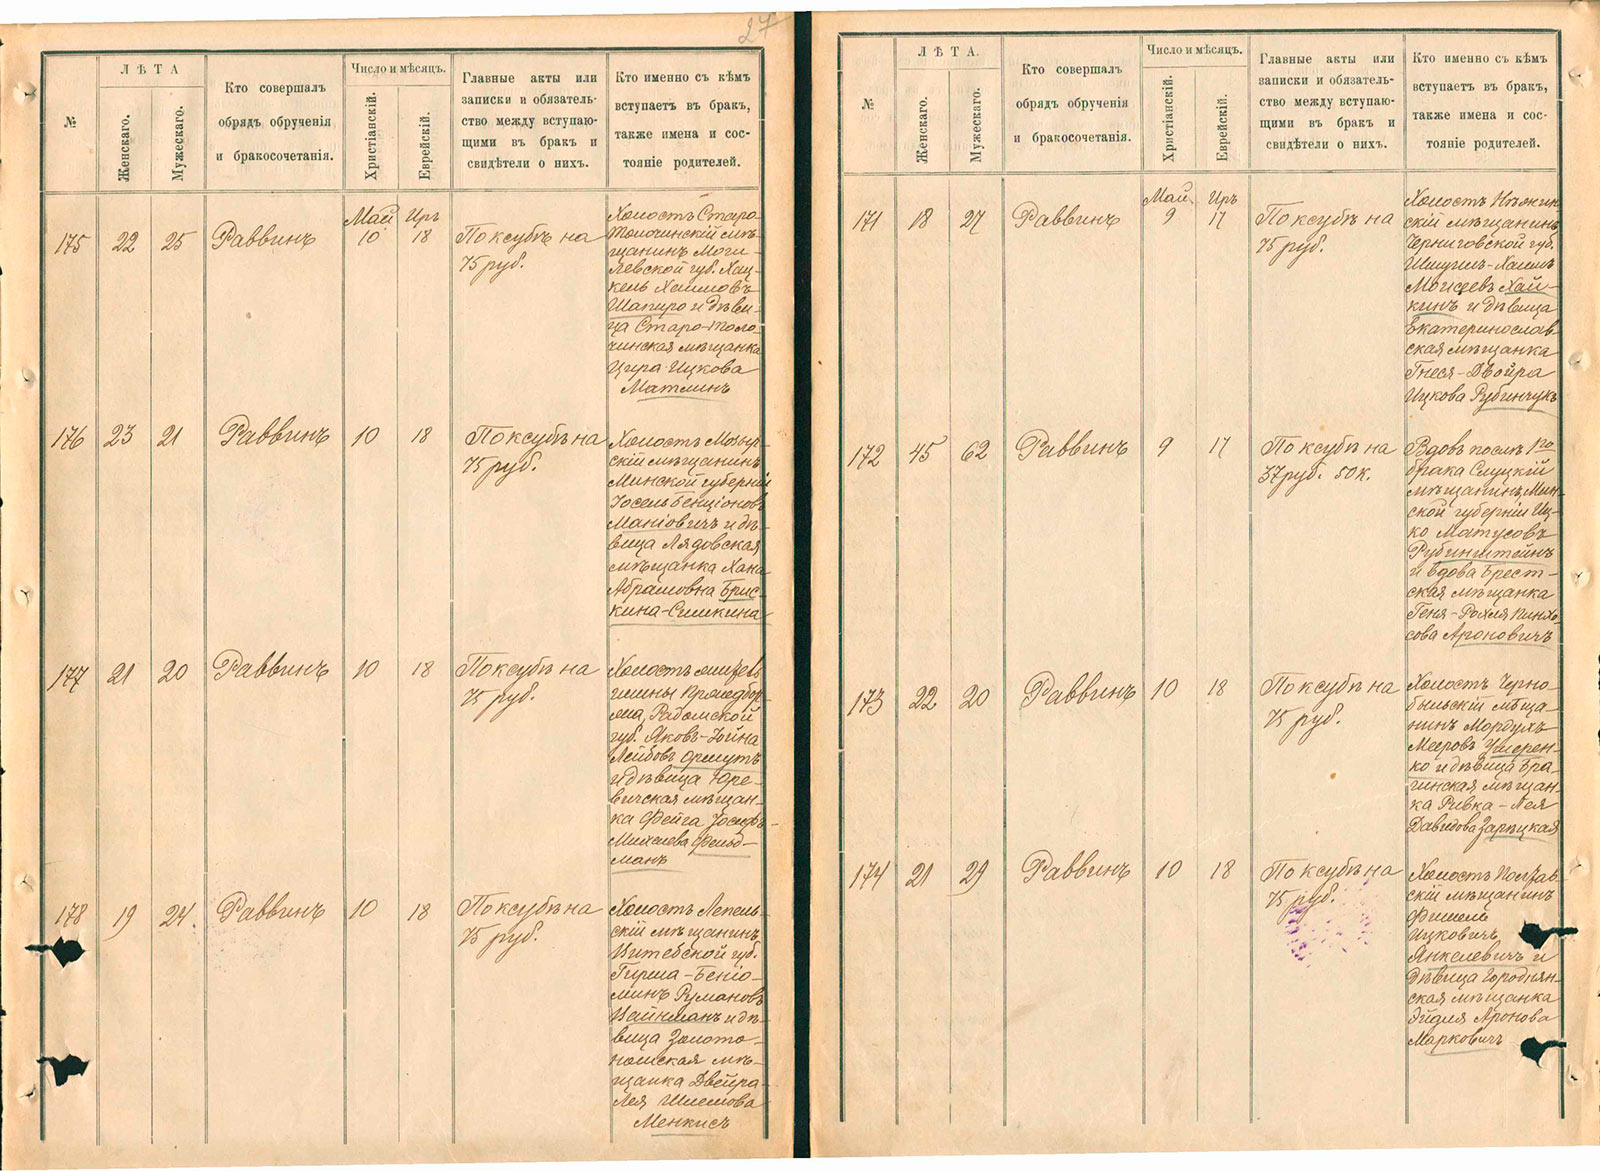 27
№
ЛѢТА
Женскаго.
Мужескаго.
Кто совершалъ
обрядъ обрученія
и бракосочетанія.
Число и мѣсяцъ.
Христіанскій.
Еврейскій.
Главные акты или
записки и обязатель-
ство между вступаю-
щими въ бракъ и
свидѣтели о нихъ.
Кто именно съ кѣмъ
вступаетъ въ бракъ,
также имена и сос-
тояніе родителей.
175
22
25
Раввинъ
Май
10
Иръ
18
По ксубѣ на
75 руб.
Холостъ Старо-
толочинскій мѣ-
щанинъ Моги-
левской губ. Хац-
кель Хаимовъ
Шапиро и дѣви-
ца Старо-толо-
чинская мѣщанка
Цира Ицкова
Матлинъ
176
23
21
Раввинъ
10
18
По ксубѣ на
75 руб.
Холостъ Мозыр-
скій мѣщанинъ
Минской губерніи
Іосель Бенціоновъ
Маніовичъ и дѣ-
вица Лядовская
мѣщанка Хана
Абрамовна Брис-
кина-Симкина
177
21
20
Раввинъ
10
18
По ксубѣ на
75 руб.
Холостъ
гмины
Радомской
губ. Яковъ-Іойна
Лейбовъ Фрмутъ
и дѣвица Юре-
вичская мѣщан-
ка Фейга Іосифъ-
Михелева Фельд-
манъ
178
19
24.
Раввинъ
10
18
По ксубѣ на
75 руб.
Холостъ Лепель-
скій мѣщанинъ
Витебской губ.
Гирша-Беніо-
минъ Румановъ
Вайнманъ и дѣ-
вица Золото-
ношская мѣ-
щанка Двейра-
Лея Шлемова
Менкисъ
№
ЛѢТА.
Женскаго.
Мужескаго.
Кто совершалъ
обрядъ обрученія
и бракосочетанія.
Число и мѣсяцъ.
Христіанскій.
Еврейскій.
Главные акты или
записки и обязатель-
ство между вступаю-
щими въ бракъ и
свидѣтели о нихъ.
Кто именно съ кѣмъ
вступаетъ въ бракъ,
также имена и сос-
тояніе родителей.
171
18
27
Раввинъ
Май
9
Иръ
17
По ксубѣ на
75 руб.
Холостъ Нѣжин-
скій мѣщанинъ
Черниговской губ.
Шмуилъ-Хаимъ
Моисеевъ Хай-
кинъ и дѣвица
Екатеринослав-
ская мѣщанка
Гнеся-Двойра
Ицкова Рубинчукъ
172
45
62
Раввинъ
9
17
По ксубѣ на
37 руб. 50 к.
Вдовъ послѣ 1го
брака Слуцкій
мѣщанинъ Мин-
ской губерніи Иц-
ко Матусовъ
Рубинштейнъ
и вдова Брест-
ская мѣщанка
Геня-Рохля Пинхо-
сова Ароновичъ
173
22
20
Раввинъ
10
18
По ксубѣ на
75 руб.
Холостъ Черно-
быльскій мѣща-
нинъ Мордухъ
Мееровъ Умерен-
ко и дѣвица Бра-
гинская мѣщан-
ка Ривка-Лея
Давидова Зарѣцкая
174
21
29
Раввинъ
10
18
По ксубѣ на
75 руб.
Холостъ Полтав-
скій мѣщанинъ
Фишель
Ицковичъ
Янкелевичъ и
дѣвица Городнян-
ская мѣщанка
Эйдля Аронова
Марковичъ